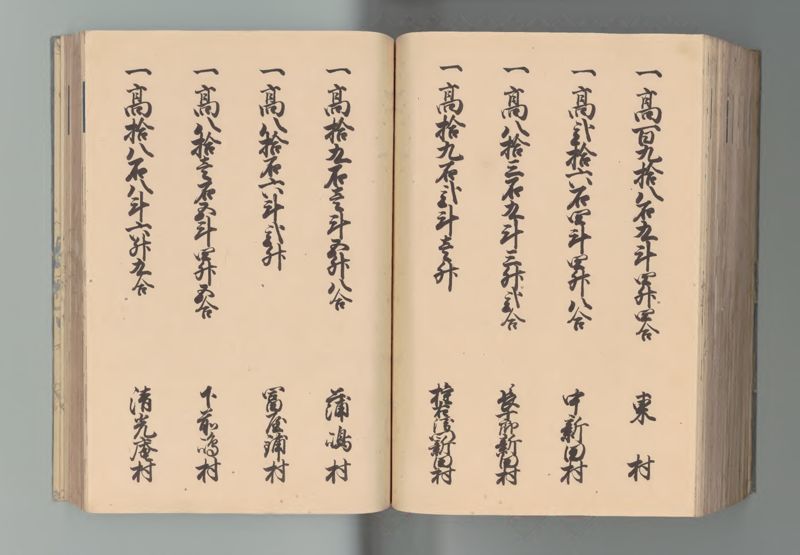 一高百九拾八石九斗四升四合 東村
一高弐拾六石四斗四升八合 中新田村
一高八拾三石九斗三升弐合 新田村
一高拾九石弐斗壱升 新田村
一高拾五石壱斗五升八合 蒲嶋村
一高八拾石六斗弐升 冨屋鋪村
一高八拾壱石五斗四升五合 下前嶋村
一高拾八石八斗六升九合 清光庵村